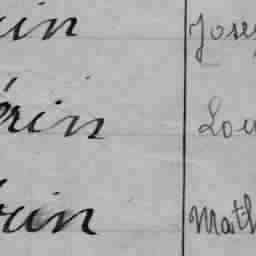 in Jose
érin Lou
rin Math